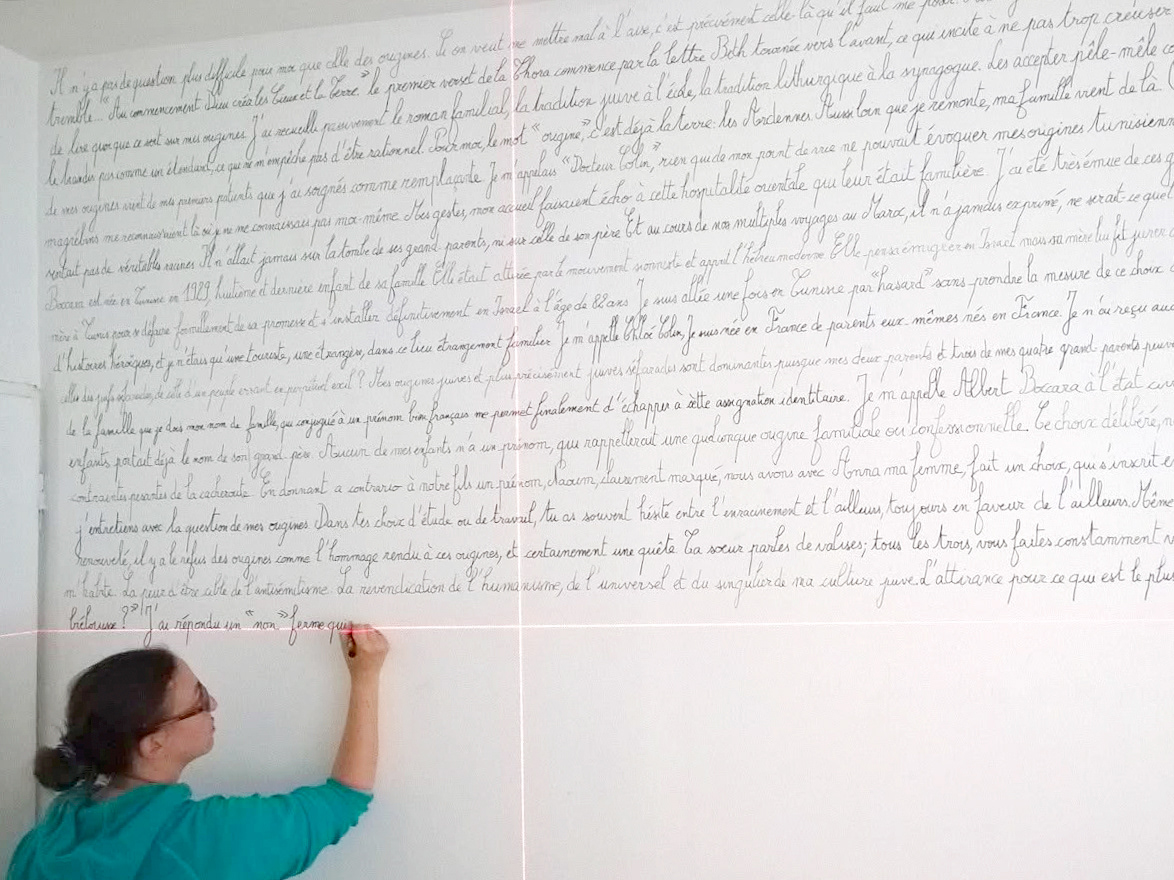 Il n'y a pas de question plus difficile pour moi que celle des origines. Si on veut me mettre mal à l'aise, c'est précisément celle-là qu'il faut me
tremble... "Au commencement Dieu créa les Cieux et la Terre." le premier verset de la Thora commence par la lettre Beth tournée vers l'avant, ce qui incite à ne pas trop creuser
de lire quoi que ce soit sur mes origines. J'ai recueilli passivement le roman familial, la tradition juive à l'école, la tradition lithurgique à la synagogue. Les accepter pêle-mêle
le brandir pas comme un étendard, ce qui ne m'empêche pas d'être rationnel. Pour moi, le mot "origine", c'est déjà la terre: les Ardennes. Aussi loin que je remonte, ma famille vient de là.
de mes origines vient de mes premiers patients que j'ai soignés comme remplaçante. Je m'appelais "Docteur Colin," rien qui de mon point de vue ne pouvait évoquer mes origines tunisiennes
magrébins me reconnaissaient là où je ne me connaissais pas moi-même. Mes gestes, mon accueil faisaient écho à cette hospitalité orientale qui leur était familière. J'ai été très émue de ces
sentait pas de véritables racines. Il n'allait jamais sur la tombe de ses grand-parents, ni sur celle de son père. Et au cours de nos multiples voyages au Maroc, il n'a jamais exprimé, ne serait-ce que
Boccara est née en Tunisie en 1929, huitième et dernière enfant de sa famille. Elle était attirée par le mouvement sioniste et apprit l'hébreu moderne. Elle pensa émigrer en Israël mais sa mère lui fit jurer
mère à Tunis pour se défaire formellement de sa promesse et s'installer définitivement en Israël à l'âge de 82 ans. Je suis allée une fois en Tunisie par "hasard" sans prendre la mesure de ce choix
d'histoires héroïques, et je n'étais qu'une touriste, une étrangère, dans ce lieu étrangement familier. Je m'appelle Chloé Colin, je suis née en France de parents eux-mêmes nés en France. Je n'ai reçu
celles des juifs séfarades, de celle d'un peuple errant en perpétuel exil? Mes origines juives et plus précisément juives séfarades sont dominantes puisque mes deux parents et trois de mes quatre grand-parents
de la famille que je dois mon nom de famille, qui conjugué à un prénom bien français me permet finalement d'échapper à cette assignation identitaire. Je m'appelle Albert Boccara à l'état
enfants portait déjà le nom de son grand-père. Aucun de mes enfants n'a un prénom, qui rappellerait une quelconque origine familiale ou confessionnelle. Ce choix délibéré,
contraintes pesantes de la cacheroute. En donnant a contrario à notre fils un prénom, Naoum, clairement marqué, nous avons avec Anna ma femme, fait un choix, qui s'inscrit
j'entretiens avec la question de mes origines. Dans tes choix d'étude ou de travail, tu as souvent hésité entre l'enracinement et l'ailleurs, toujours en faveur de l'ailleurs. Même
renouvelé, il y a le refus des origines comme l'hommage rendu à ces origines, et certainement une quête. Ta soeur parles de valises; tous les trois, vous faites constamment
m'habite. La peur d'être cible de l'antisémitisme. La revendication de l'humanisme, de l'universel et du singulier de ma culture juive. L'attirance pour ce qui est le plus
biélorusse?" J'ai répondu un "non" ferme qui